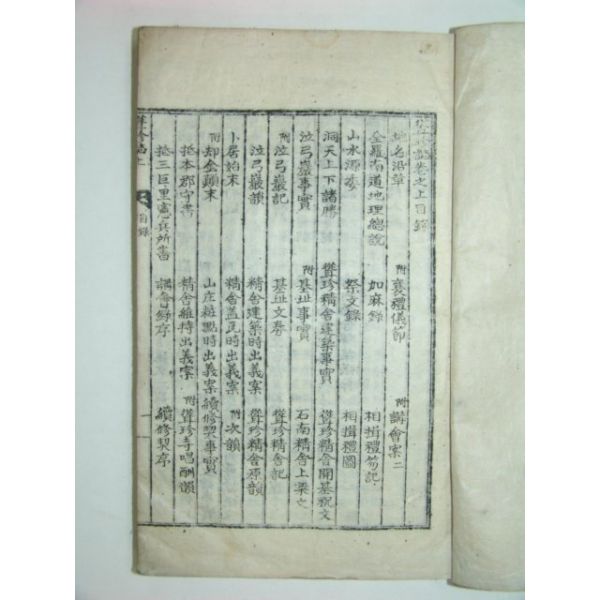 聳珍誌卷之上目錄
地名沿革　附 襄禮儀節　附 講會案二
全羅南道地理總說　加麻錄　相揖禮笏記
山水源委　祭文錄　相揖禮圖
洞天上下諸勝　聳珍精舍建築事實　聳珍精舍開基祝文
泣弓巖事實　附 基址事實　石南精舍上梁文
附 泣弓巖記　基址文券　聳珍精舍記
泣弓巖韻　精舍建築時出義案　聳珍精舍原韻
卜居始末　精舍蓋瓦時出義案　附 次韻
附 却金顚末　山庄粧點時出義案　續修契事實
抵本郡守書　精舍維持出義案　附 聳珍寺唱酬韻
抵三巨里憲兵所書　講會契序　續修契序
聳珍誌上　目錄